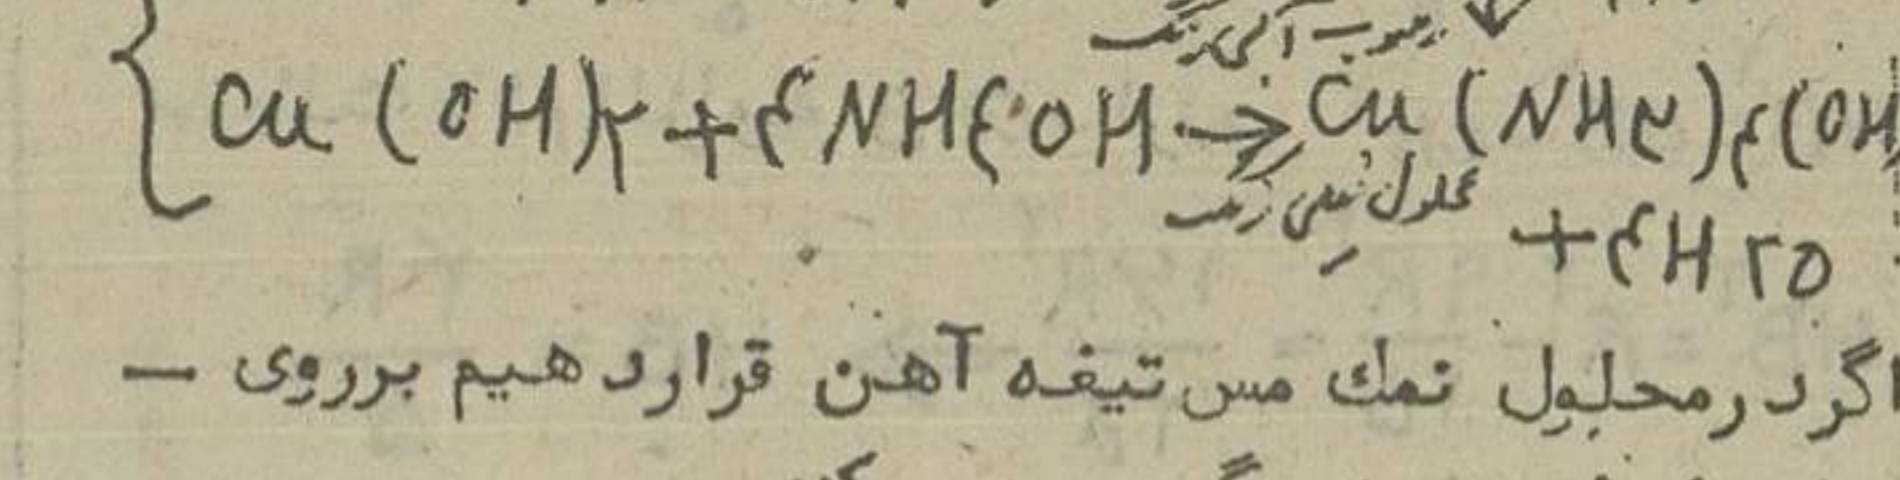 رسوب آبی رنگ
Cu (OH)۲ + ۴NH۴OH → Cu (NH۳)۴(OH
محلول نیلی رنگ
+ ۴H۲O
اگر در محلول نمك مس تیغه آهن قرار دهیم برروی –